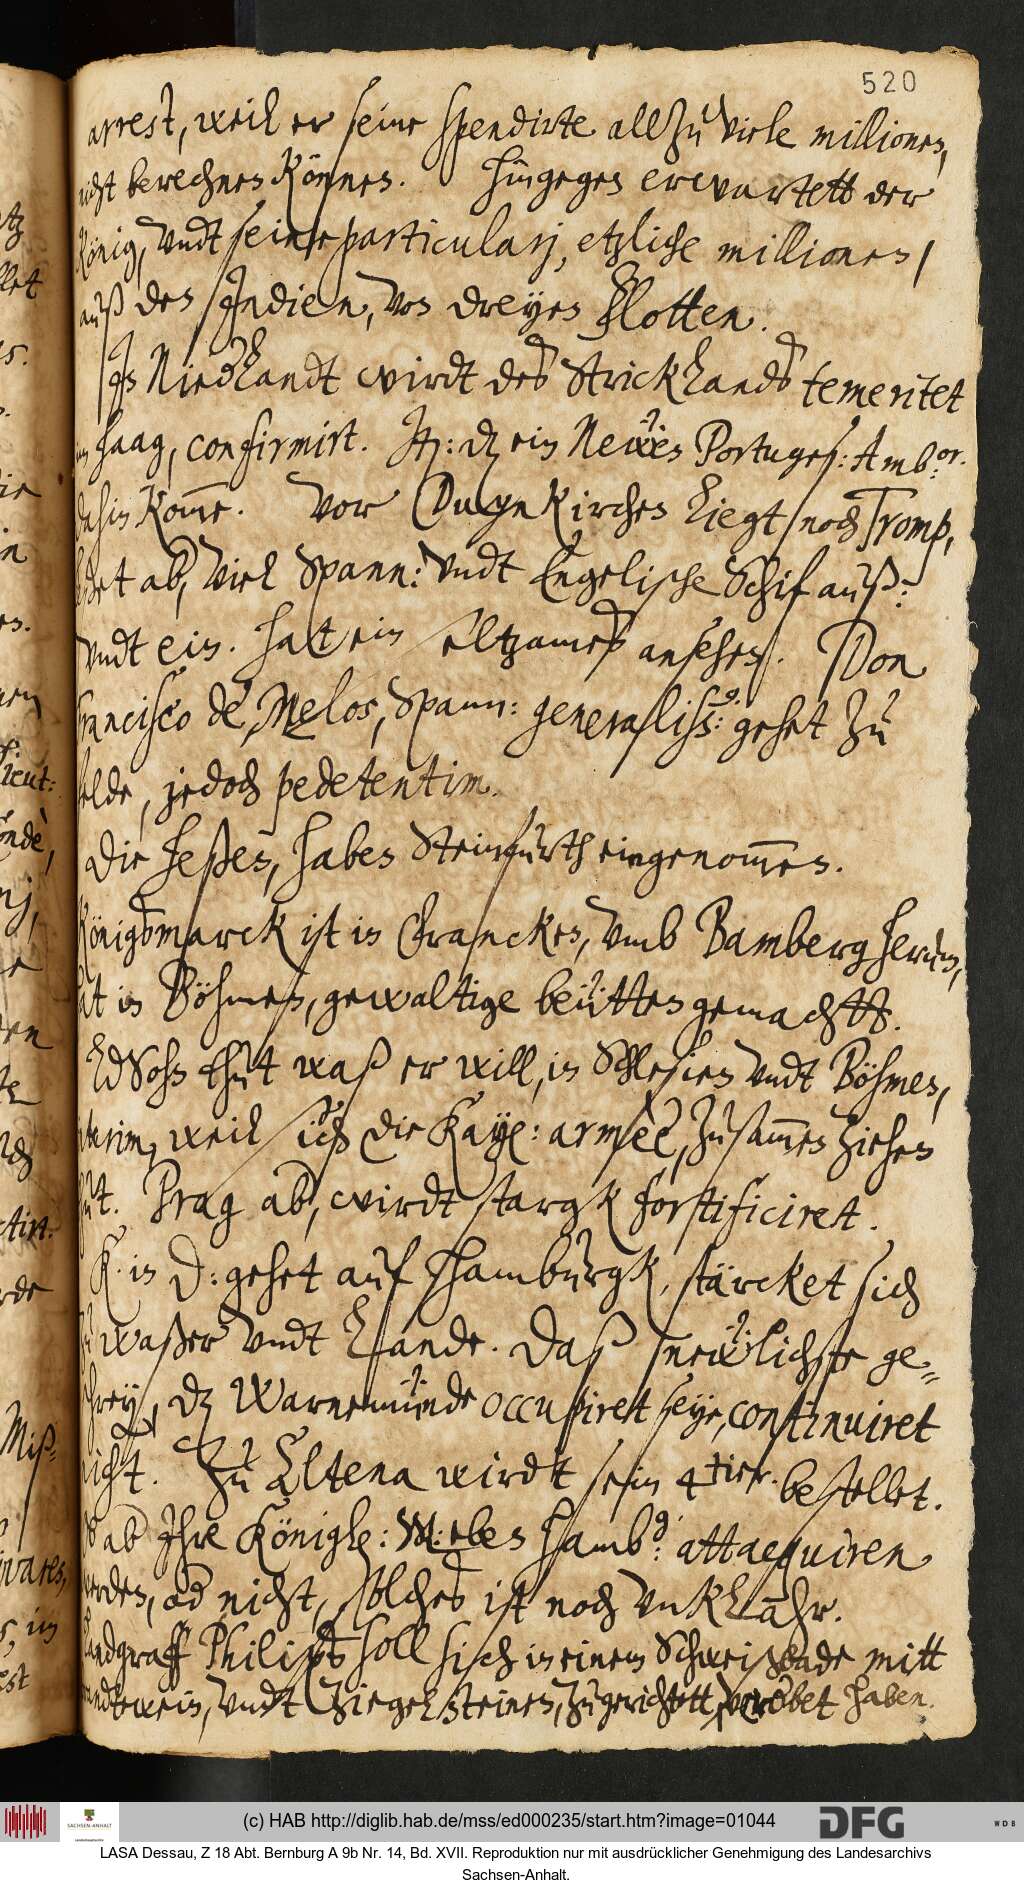 520
arrest, weil er seine spendirte allzu viele millionen,
nicht berechnen können. Hingegen erwartett der
König, vndt seine particularj, etzliche millionen,
auß den Jndien, von dreyen Flotten.
Jn Niederlandt wirdt des Stricklands temeritet
im Haag, confirmirt. Jt: dz ein Neẅes Portuges: Ambor.
dahin komme. Vor Duynkirchen liegt noch Tromp,
ab, viel Spann: vndt Engelische Schif auß:
vndt ein. hat ein seltzames ansehen. Don
Francisco de Melos, Spann: generaliss: gehet zu
felde, jedoch pedetentim.
Die Heßen, haben Steinfurth eingenommen.
Königsmarck ist in Francken, vmb Bamberg herumb,
hat in Böhmen, gewaltige beütten gemachtt.
LdSohn thut waß er will, in Schlesien vndt Böhmen,
interim, weil sich die Kaye: armée, zusammen ziehen
thut. Prag aber, wirdt stargk fortificiret.
K. in D: gehet auf Hamburgk, stärcket sich
zu waßer vndt Lande. Daß newlichste ge¬
schrey, dz Warnemünde occupiret seye, continuiret
nicht. Zu Altena wirdt sein 4tier. bestellet.
Ob aber Jhre Königl: M: eben Hambg: attacquiren
werden, oder nicht, solches ist noch vnklahr.
Landgraff Philips soll sich in einem Schweißbade mitt
brandtwein, vndt Ziegelsteinen, zugerichtett, verderbet haben.
(c) HAB http://diglib.hab.de/mss/ed000235/start.htm?image=01044
SACHSEN-ANHALT
DFG
WDB
LASA Dessau, Z 18 Abt. Bernburg A 9b Nr. 14, Bd. XVII. Reproduktion nur mit ausdrücklicher Genehmigung des Landesarchivs
Sachsen-Anhalt.